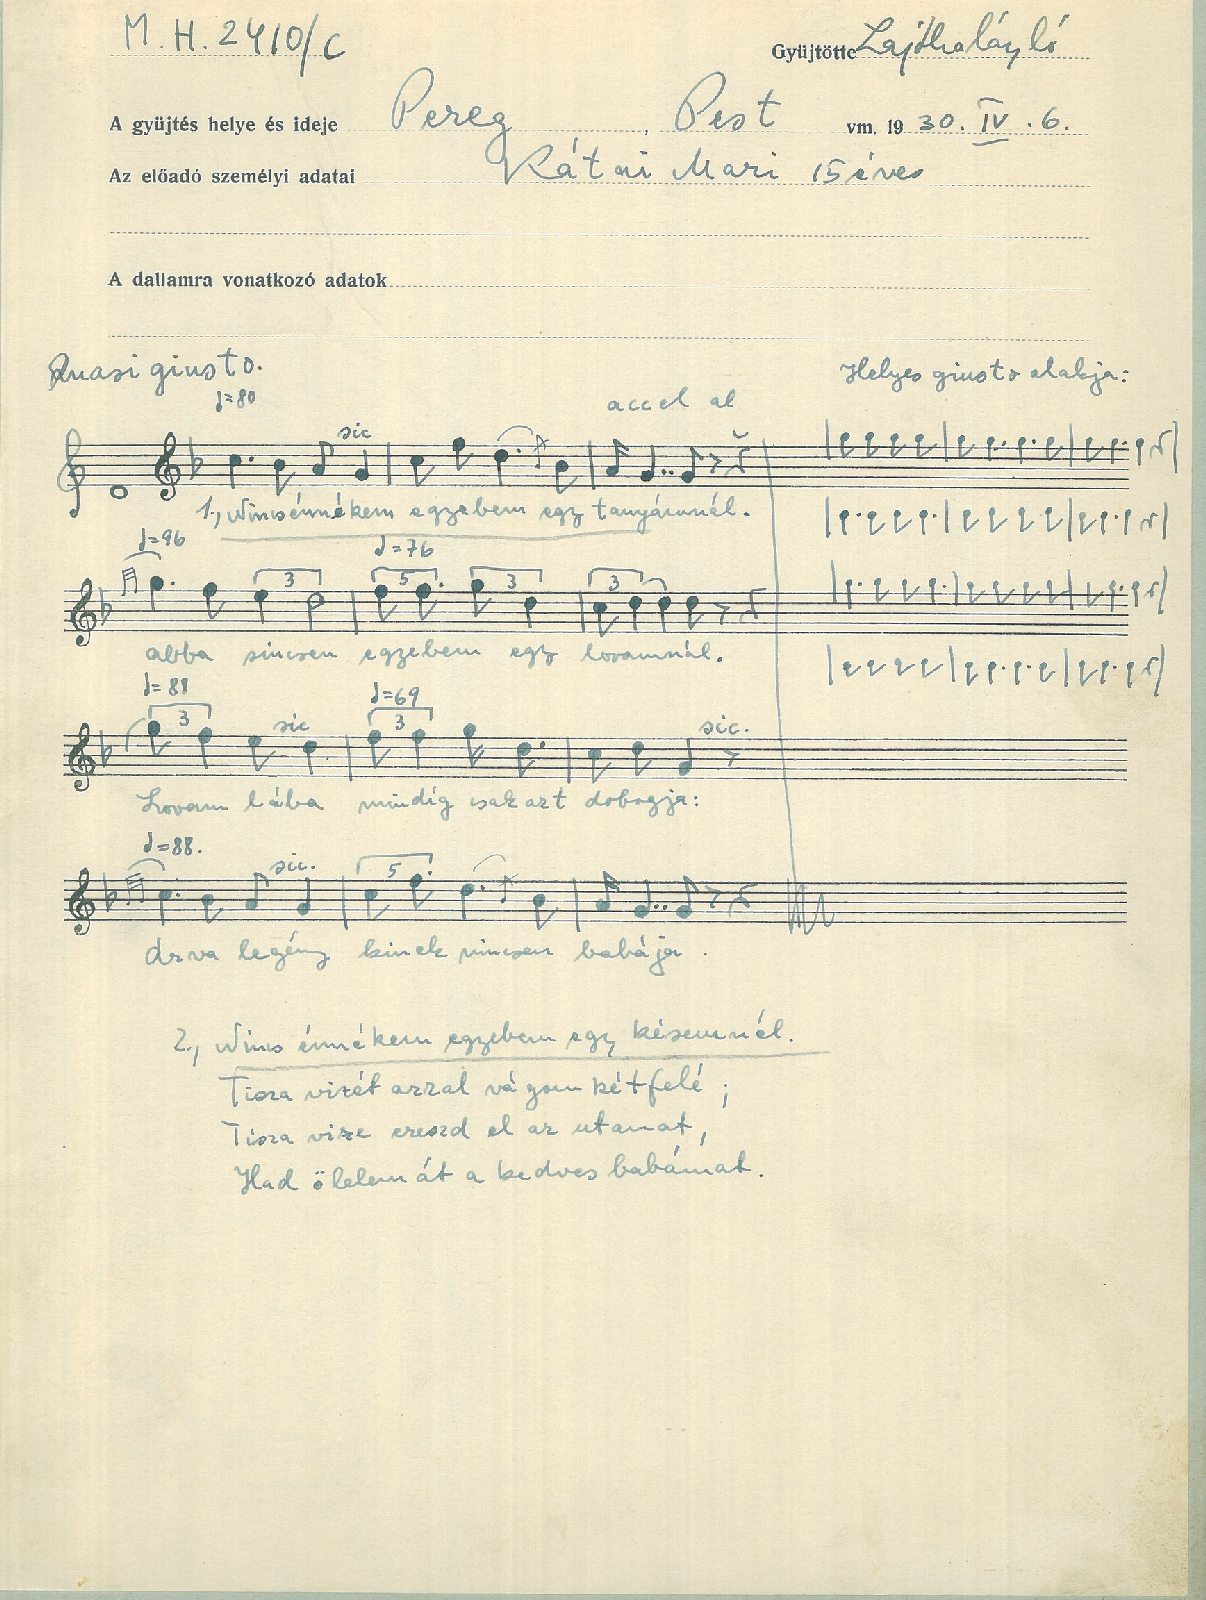 M. H. 2410/c
Gyüjtötte Lajtha László
A gyüjtés helye és ideje Pereg, Pest vm. 1930. IV. 6.
Az előadó személyi adatai Kátai Mari 15 éves
A dallamra vonatkozó adatok
Quasi giusto.
Helyes giusto alakja:
♩=80
accel al
sic
1., Nincs énnékem egyebem egy tanyámnál.
♩=96 ♩=76
3 5 3 3
abba sincsen egyebem egy lovamnál.
♩=88 ♩=69
3 sic 3 sic.
Lovam lába mindíg csak azt dobogja:
♩=88.
sic. 5
árva legény kinek nincsen babája.
2., Nincs énnékem egyebem egy késemnél.
Tisza vizét azzal vágom kétfelé;
Tisza vize ereszd el az utamat,
Had ölelem át a kedves babámat.